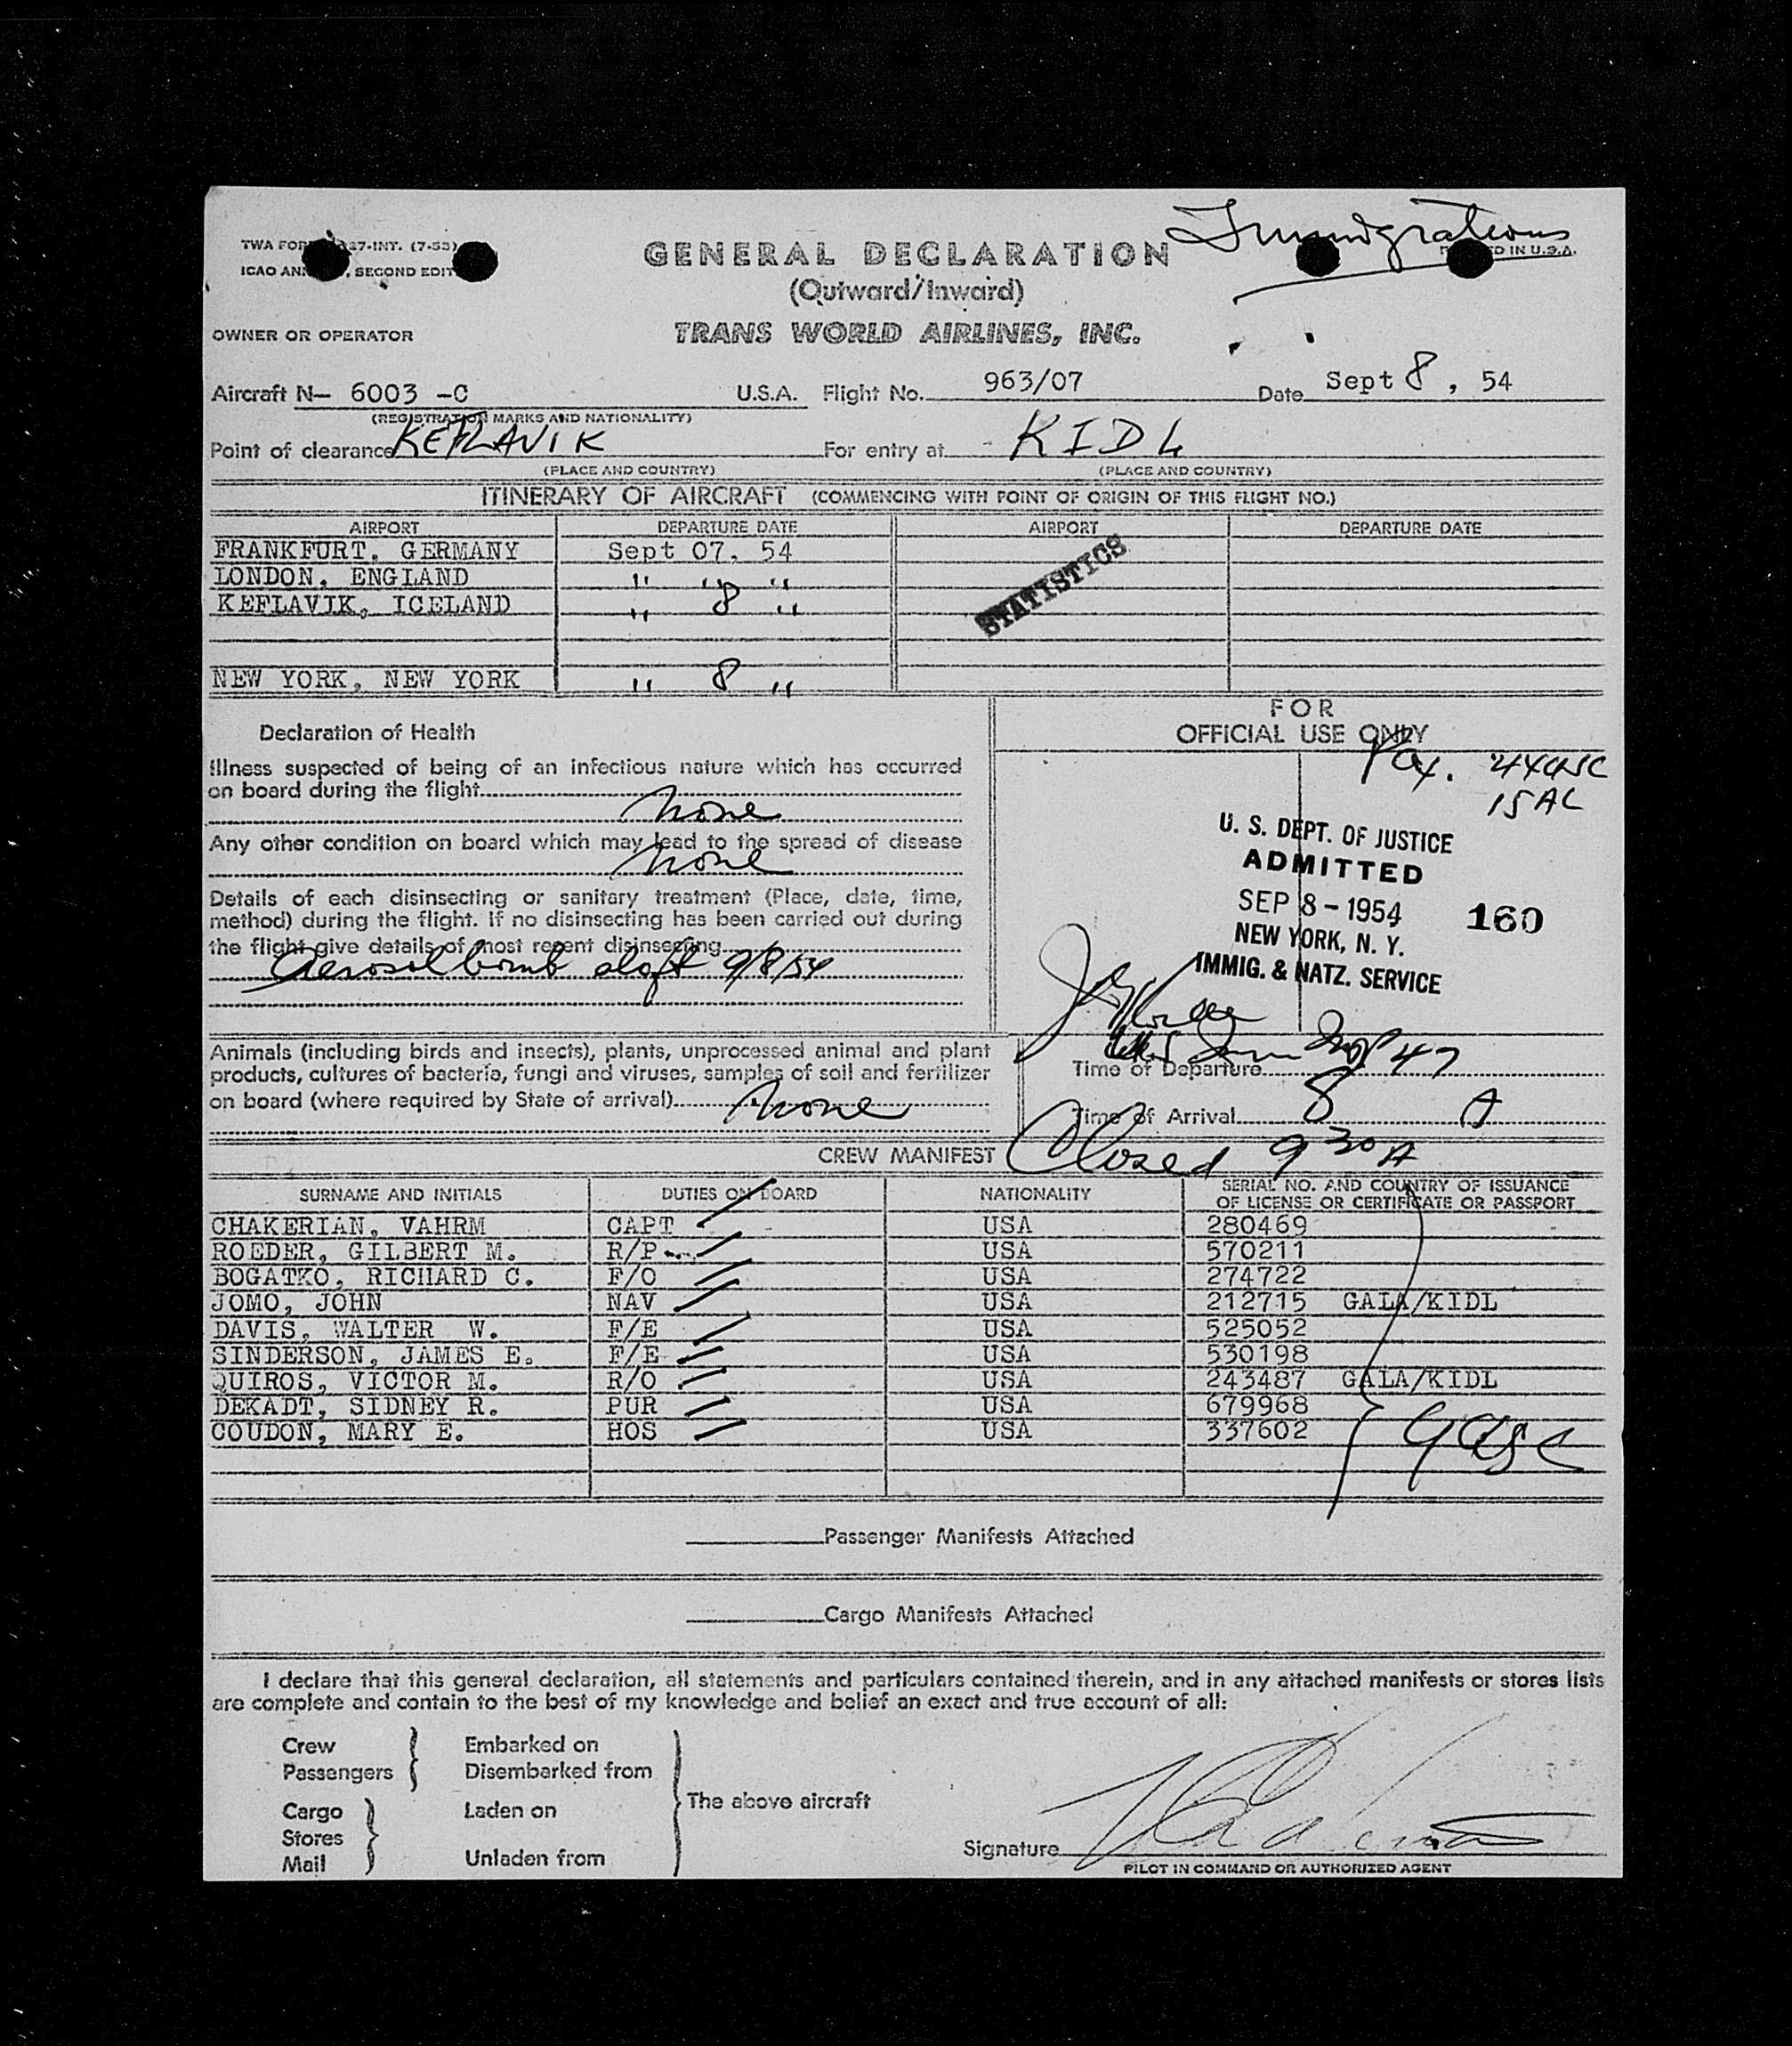 Immigrations
TWA FOR 37-INT. (7-53)
ICAO ANN , SECOND EDIT
D IN U.S.A.
GENERAL DECLARATION
(Outward/Inward)
OWNER OR OPERATOR
TRANS WORLD AIRLINES, INC.
Aircraft N- 6003 -C U.S.A. Flight No. 963/07 Date Sept 8, 54
(REGISTRATION MARKS AND NATIONALITY)
Point of clearance KEFLAVIK For entry at KIDL
(PLACE AND COUNTRY) (PLACE AND COUNTRY)
ITINERARY OF AIRCRAFT (COMMENCING WITH POINT OF ORIGIN OF THIS FLIGHT NO.)
AIRPORT DEPARTURE DATE AIRPORT DEPARTURE DATE
FRANKFURT, GERMANY Sept 07, 54
LONDON, ENGLAND " " "
KEFLAVIK, ICELAND " 8 "
STATISTICS
NEW YORK, NEW YORK " 8 "
Declaration of Health
Illness suspected of being of an infectious nature which has occurred
on board during the flight
None
Any other condition on board which may lead to the spread of disease
None
Details of each disinsecting or sanitary treatment (Place, date, time,
method) during the flight. If no disinsecting has been carried out during
the flight give details of most recent disinsecting
Aerosol bomb aloft 9/8/54
FOR
OFFICIAL USE ONLY
Pax. 44 USC
15 AL
U. S. DEPT. OF JUSTICE
ADMITTED
SEP 8 - 1954
160
NEW YORK, N. Y.
IMMIG. & NATZ. SERVICE
Animals (including birds and insects), plants, unprocessed animal and plant
products, cultures of bacteria, fungi and viruses, samples of soil and fertilizer
on board (where required by State of arrival) None
47
Time of Departure
Time of Arrival 8 A
Closed 9 30 A
CREW MANIFEST
SURNAME AND INITIALS DUTIES ON BOARD NATIONALITY SERIAL NO. AND COUNTRY OF ISSUANCE
OF LICENSE OR CERTIFICATE OR PASSPORT
CHAKERIAN, VAHRM CAPT USA 280469
ROEDER, GILBERT M. R/P USA 570211
BOGATKO, RICHARD C. F/O USA 274722
JOMO, JOHN NAV USA 212715 GALA/KIDL
DAVIS, WALTER W. F/E USA 525052
SINDERSON, JAMES E. F/E USA 530198
QUIROS, VICTOR M. R/O USA 243487 GALA/KIDL
DEKADT, SIDNEY R. PUR USA 679968
COUDON, MARY E. HOS USA 337602
9 USC
Passenger Manifests Attached
Cargo Manifests Attached
I declare that this general declaration, all statements and particulars contained therein, and in any attached manifests or stores lists
are complete and contain to the best of my knowledge and belief an exact and true account of all:
Crew
Passengers
Embarked on
Disembarked from
Cargo
Stores
Mail
Laden on
Unladen from
The above aircraft
Signature
PILOT IN COMMAND OR AUTHORIZED AGENT